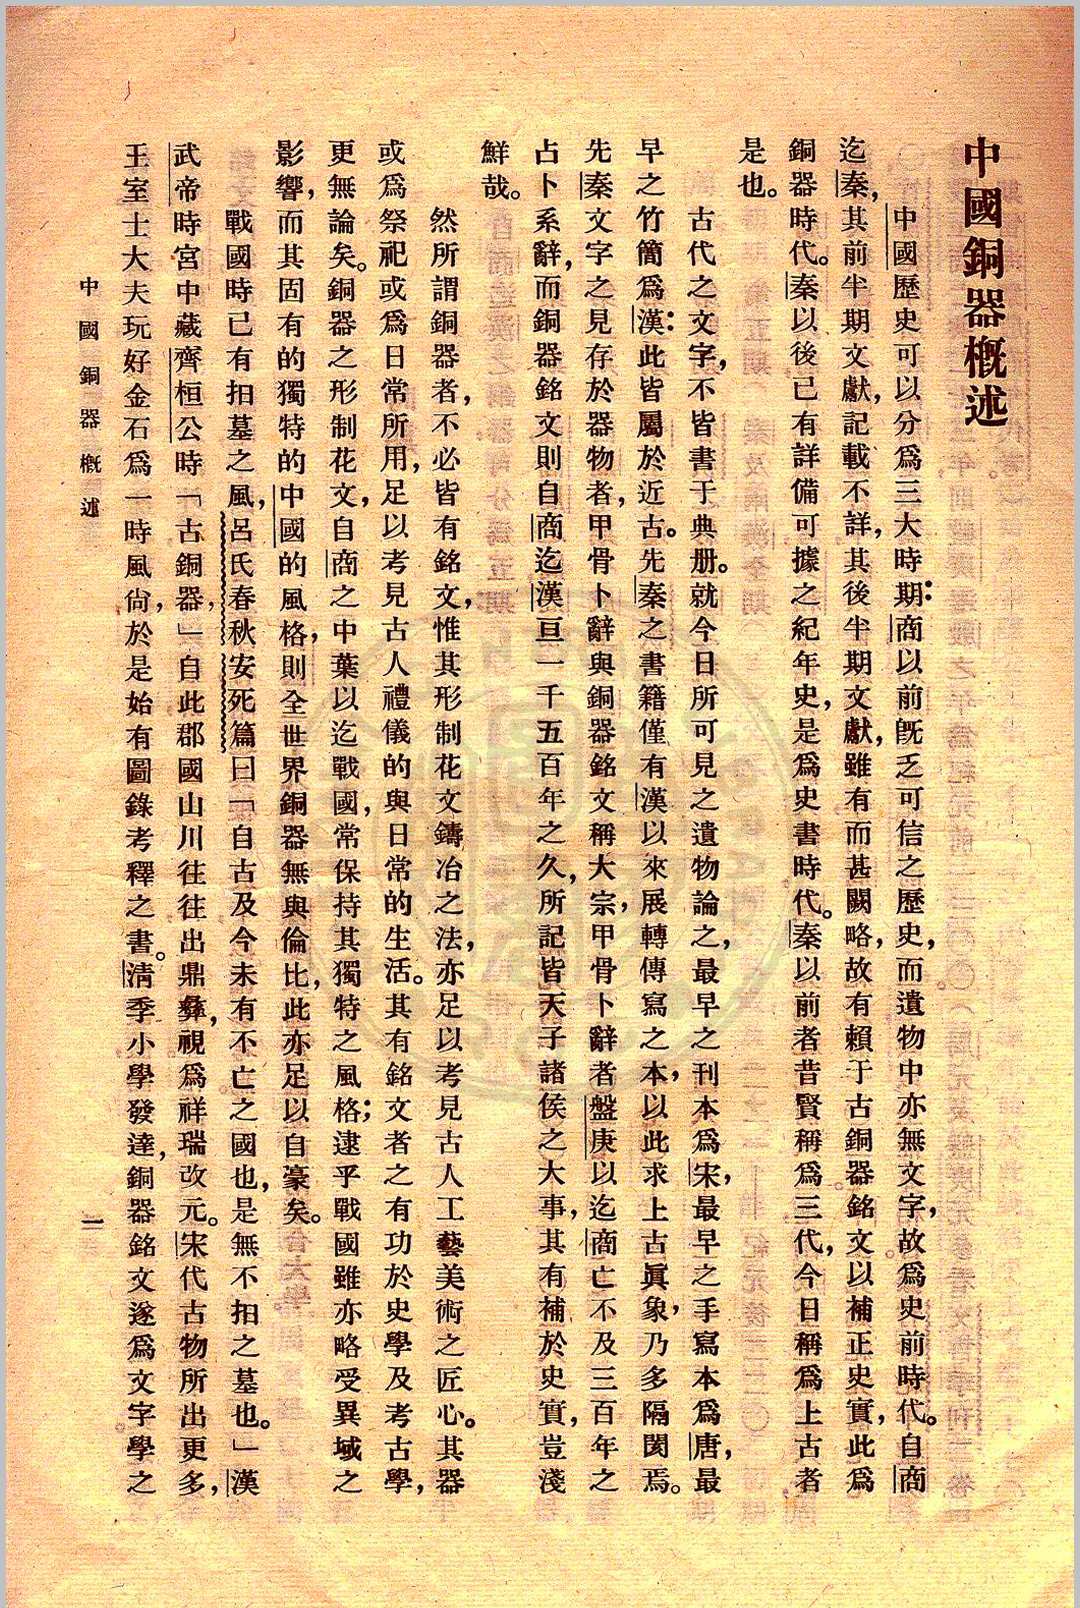 中國銅器概述
中國歷史可以分爲三大時期：商以前既乏可信之歷史，而遺物中亦無文字，故爲史前時代。自商
迄秦，其前半期文獻，記載不詳，其後半期文獻，雖有而甚闕略，故有賴于古銅器銘文以補正史實，此爲
銅器時代。秦以後已有詳備可據之紀年史，是爲史書時代。秦以前者昔賢稱爲三代，今日稱爲上古者
是也。
古代之文字，不皆書于典册。就今日所可見之遺物論之，最早之刊本爲宋，最早之手寫本爲唐，最
早之竹簡爲漢：此皆屬於近古。先秦之書籍僅有漢以來展轉傳寫之本，以此求上古眞象，乃多隔閡焉。
先秦文字之見存於器物者，甲骨卜辭與銅器銘文稱大宗，甲骨卜辭者盤庚以迄商亡不及三百年之
占卜系辭，而銅器銘文則自商迄漢亘一千五百年之久，所記皆天子諸侯之大事，其有補於史實，豈淺
鮮哉。
然所謂銅器者，不必皆有銘文，惟其形制花文鑄冶之法，亦足以考見古人工藝美術之匠心。其器
或爲祭祀或爲日常所用，足以考見古人禮儀的與日常的生活。其有銘文者之有功於史學及考古學，
更無論矣。銅器之形制花文，自商之中葉以迄戰國，常保持其獨特之風格；逮乎戰國雖亦略受異域之
影響，而其固有的獨特的中國的風格，則全世界銅器無與倫比，此亦足以自豪矣。
戰國時已有抇墓之風，呂氏春秋安死篇曰「自古及今未有不亡之國也，是無不抇之墓也。」漢
武帝時宮中藏齊桓公時「古銅器，」自此郡國山川往往出鼎彝，視爲祥瑞改元。宋代古物所出更多，
王室士大夫玩好金石爲一時風尙，於是始有圖錄考釋之書。淸季小學發達，銅器銘文遂爲文字學之
中國銅器概述
一